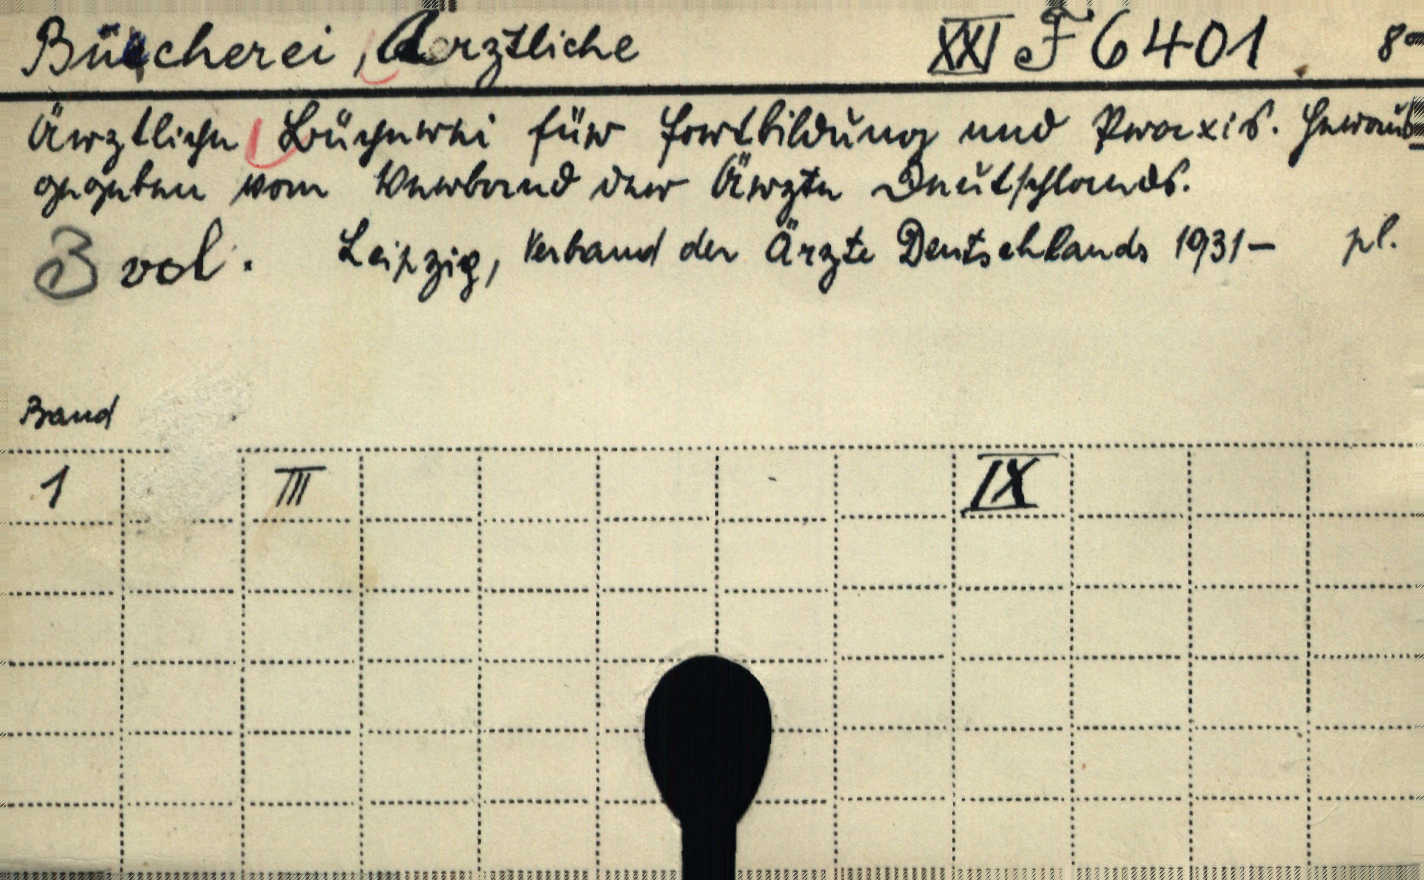 Bücherei, Aerztliche XXI F 6401 8°
Ärztliche Bücherei für Fortbildung und Praxis. Heraus-
gegeben vom Verband der Ärzte Deutschlands.
3 vol. Leipzig, Verband der Ärzte Deutschlands 1931– pl.
Band
1 III IX